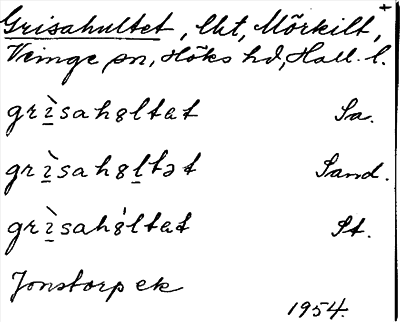 Grisahultet, lkt, Mörkilt, +
Veinge sn, Höks hd, Hall. l.
grì̱sahꝸltat Sa.
grì̱sahꝸḻtət Sand.
grì̱sahꝸ́ltat St.
Jonstorp ek
1954.